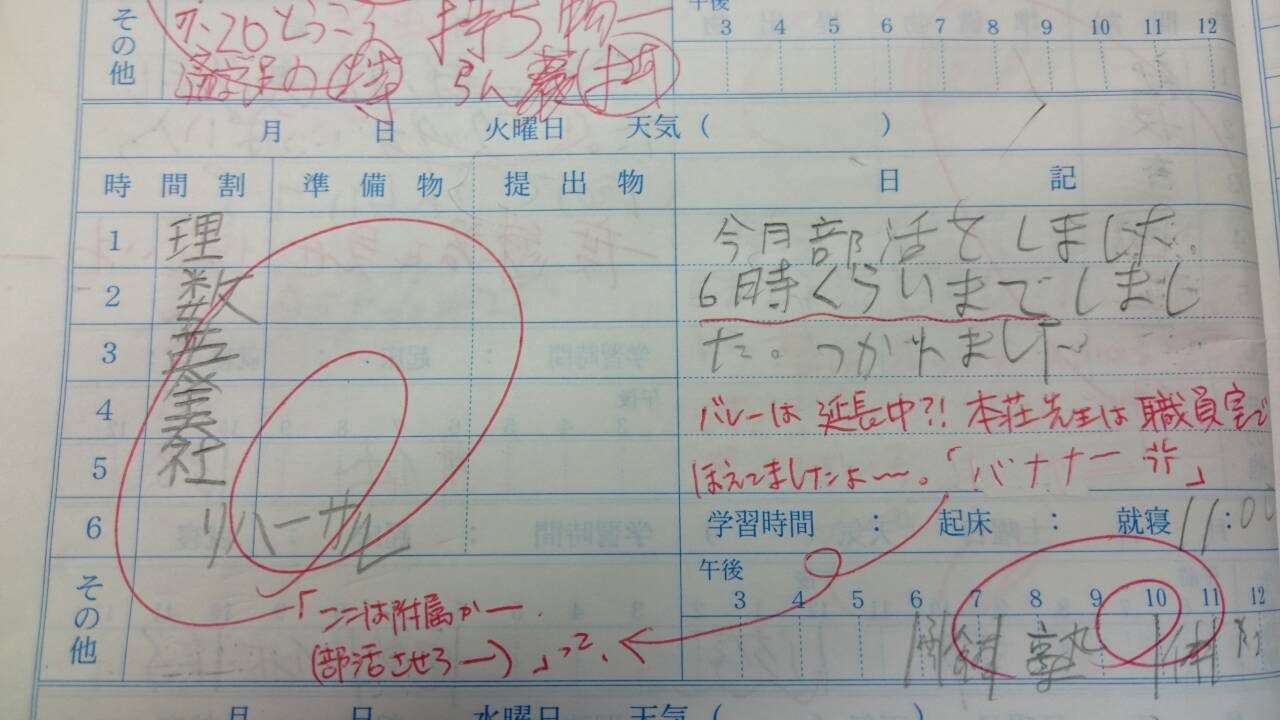 その他
7:20とうこう 持ち物一
午後
3 4 5 6 7 8 9 10 11 12
月 日 火曜日 天気 ( )
時間割 準備物 提出物 日記
1 理 今月部活をしました。
2 数 6時くらいまでしまし
3 英 た。つかれました
4 バレーは延長中?! 本荘先生は職員室で
5 社 ほえてましたよ〜〜。「バナナー 」
6 リハーサル 学習時間 : 起床 : 就寝 11:00
その他
午後
3 4 5 6 7 8 9 10 11 12
塾
「ここは附属かー.
(部活させろー)」って、
月 日 水曜日 天気 (